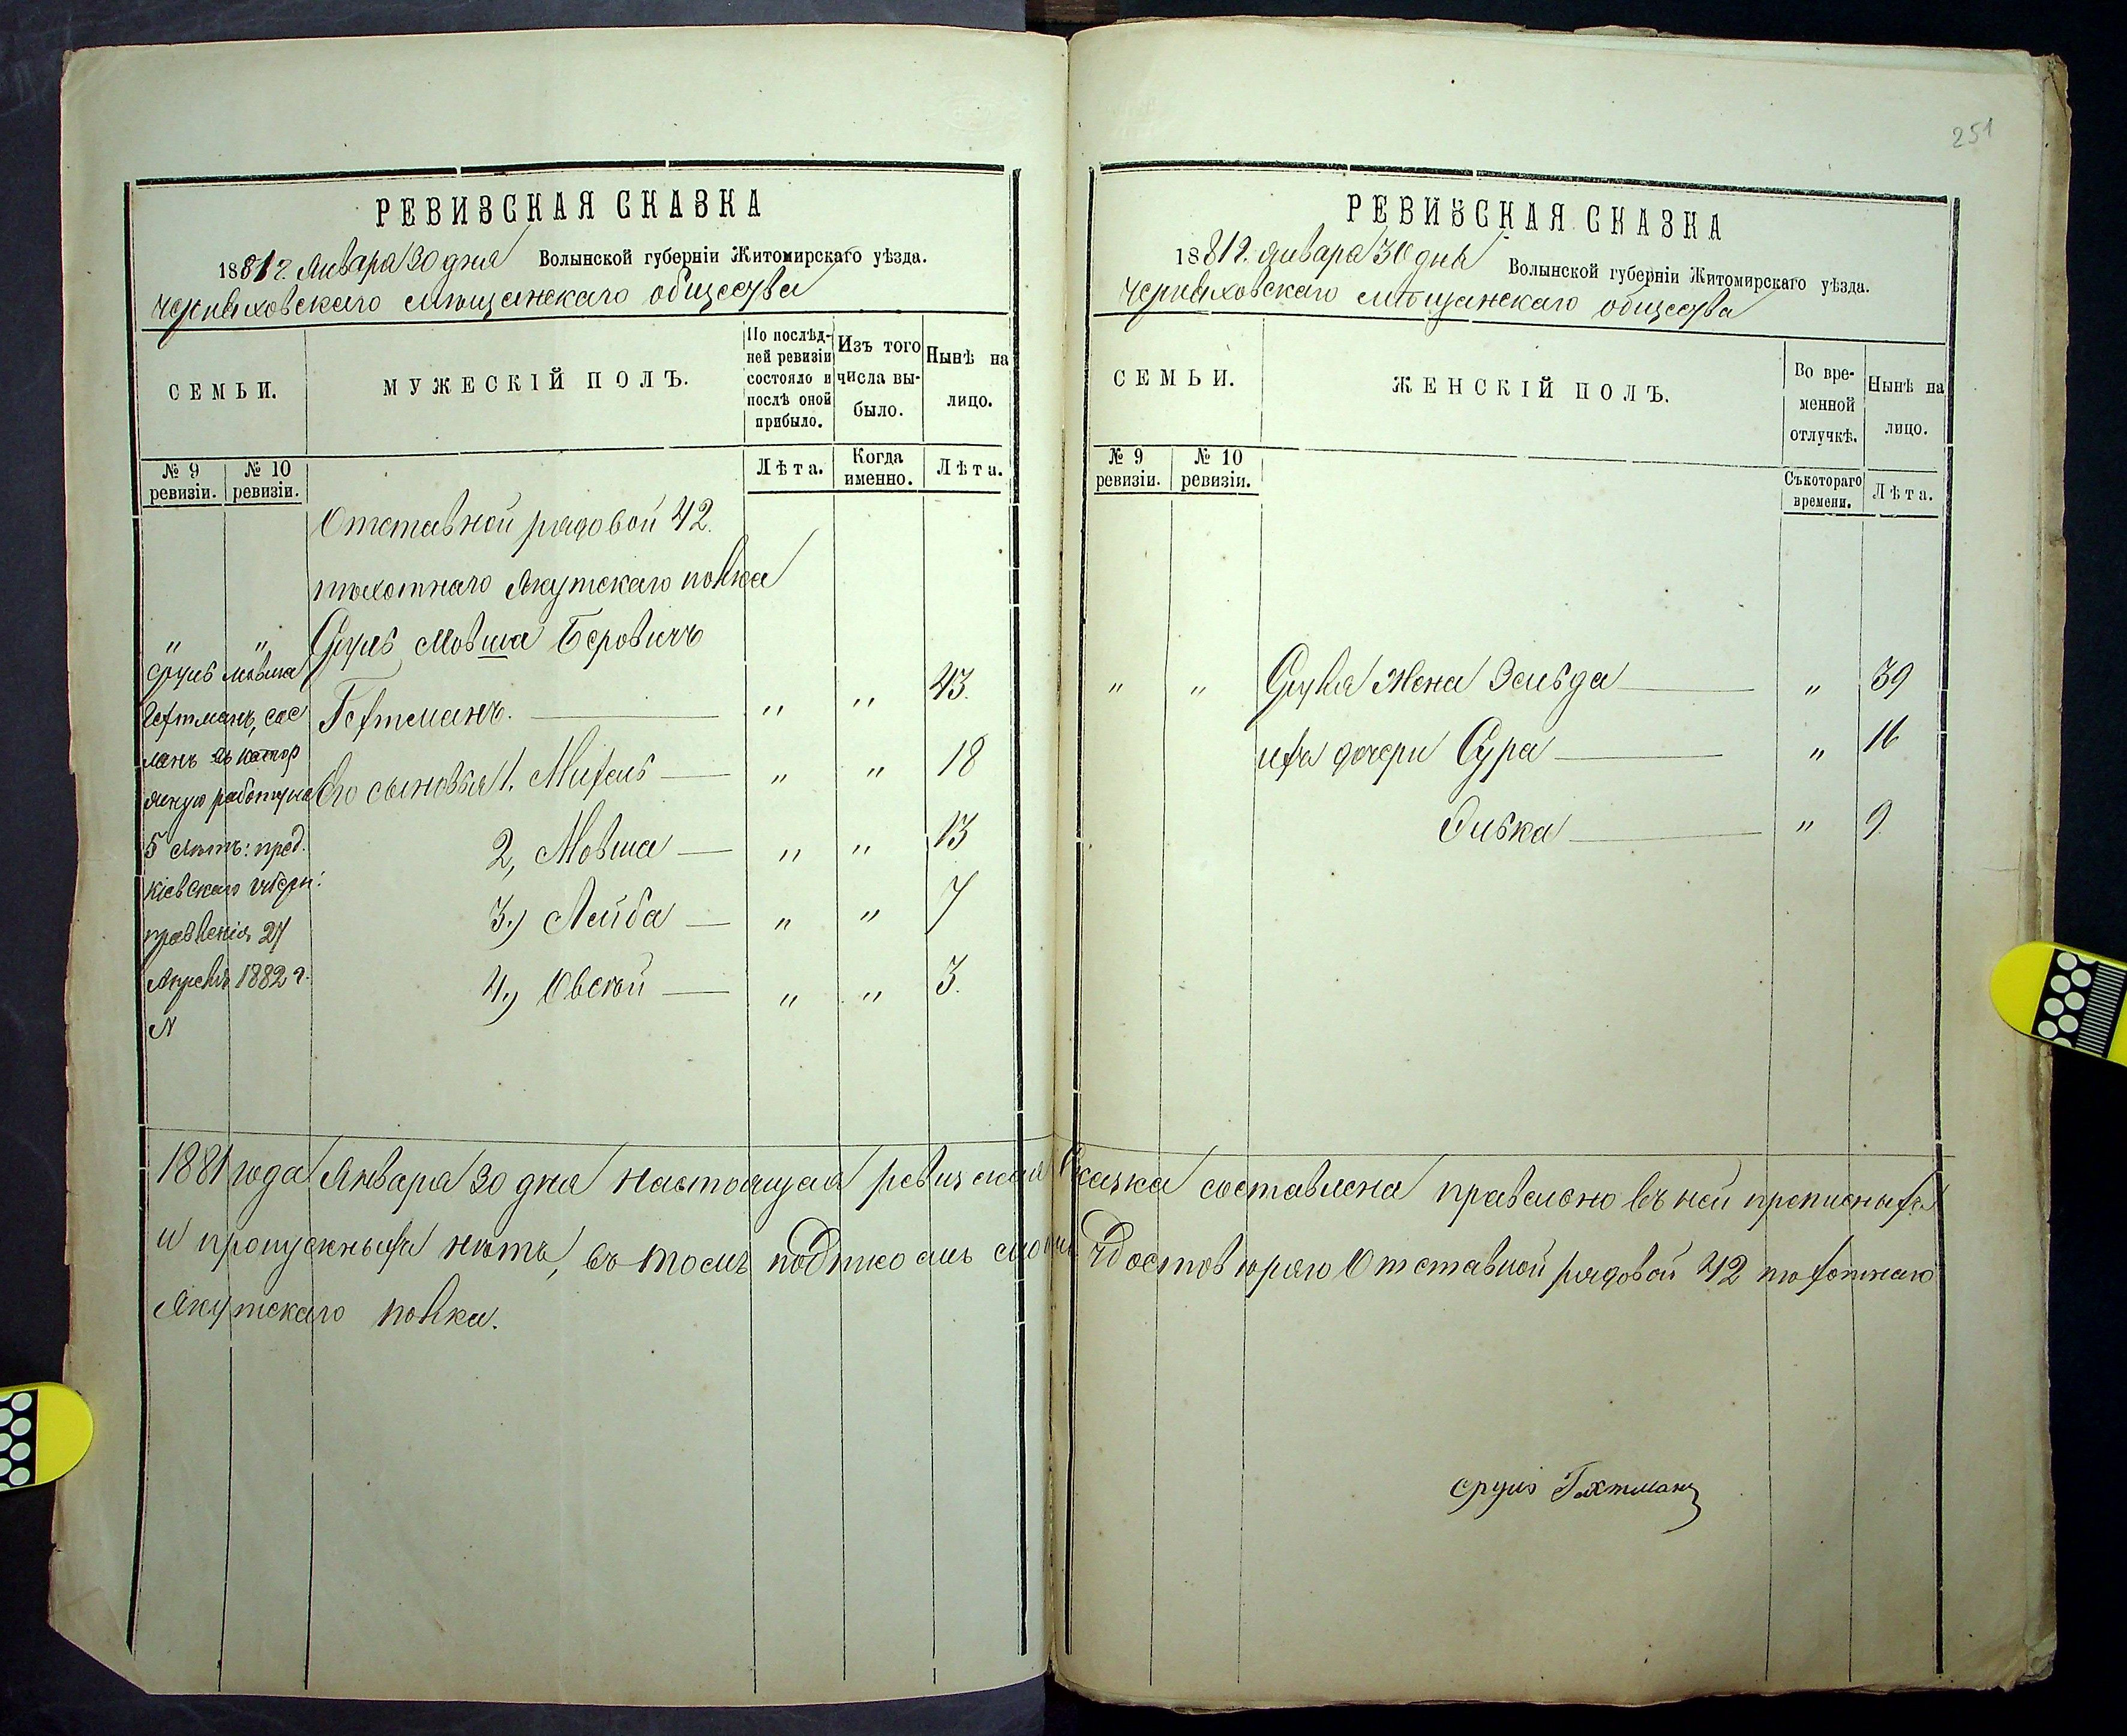 251
РЕВИЗСКАЯ СКАЗКА
1881 г. Января 30 дня Волынской губерніи Житомирскаго уѣзда.
Черняховскаго мѣщанскаго общества
СЕМЬИ.
МУЖЕСКІЙ ПОЛЪ.
По послѣд-
ней ревизіи
состояло и
послѣ оной
прибыло.
Изъ того
числа вы-
было.
Нынѣ на
лицо.
№ 9
ревизіи.
№ 10
ревизіи.
Лѣта.
Когда
именно.
Лѣта.
Отставной рядовой 42.
пѣхотнаго Якутскаго полка
" " Сруль Мовша Беровичъ
Гехтманъ. " " 43.
Его сыновья 1. Михель " " 18
2, Мовша " " 13
3., Лейба " " 7
4., Овсѣй " " 3.
Сруль Мовша
Гехтманъ, сос
ланъ въ катор
жную работу на
5 лѣтъ: пред.
Кіевскаго губерн:
правленія 27
Апрѣля 1882 г.
N
РЕВИЗСКАЯ СКАЗКА
1881 г. Января 30 дня Волынской губерніи Житомирскаго уѣзда.
Черняховскаго мѣщанскаго общества
СЕМЬИ.
ЖЕНСКІЙ ПОЛЪ.
Во вре-
менной
отлучкѣ.
Нынѣ на
лицо.
№ 9
ревизіи.
№ 10
ревизіи.
Съ котораго
времени.
Лѣта.
" " Сруля жена Зельда " 39
ихъ дочери Сура " 16
Элька " 9.
1881 года Января 30 дня настоящая ревизская сказка составлена правельно въ ней прописныхъ
и пропускныхъ нѣтъ, въ томъ подписомъ моимъ удостовѣряю Отставной рядовой 42 пѣхотнаго
Якутскаго полка.
Сруль Гехтманъ